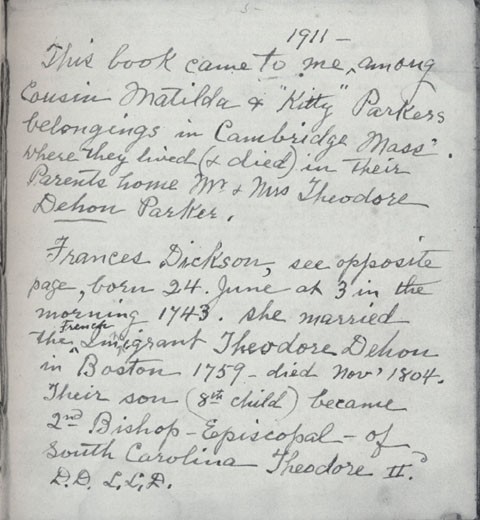 1911 –
This book came to me, among
Cousin Matilda & "Kitty" Parkers
belongings in Cambridge Mass'.
where they lived (& died) in their
Parents home Mr & Mrs Theodore
Dehon Parker.
Frances Dickson, see opposite
page, born 24. June at 3 in the
morning 1743. she married
the French Imigrant Theodore Dehon
in Boston 1759 – died Nov' 1804.
Their son (8th child) became
2nd Bishop – Episcopal – of
South Carolina Theodore II.d
D.D. L.L.D.